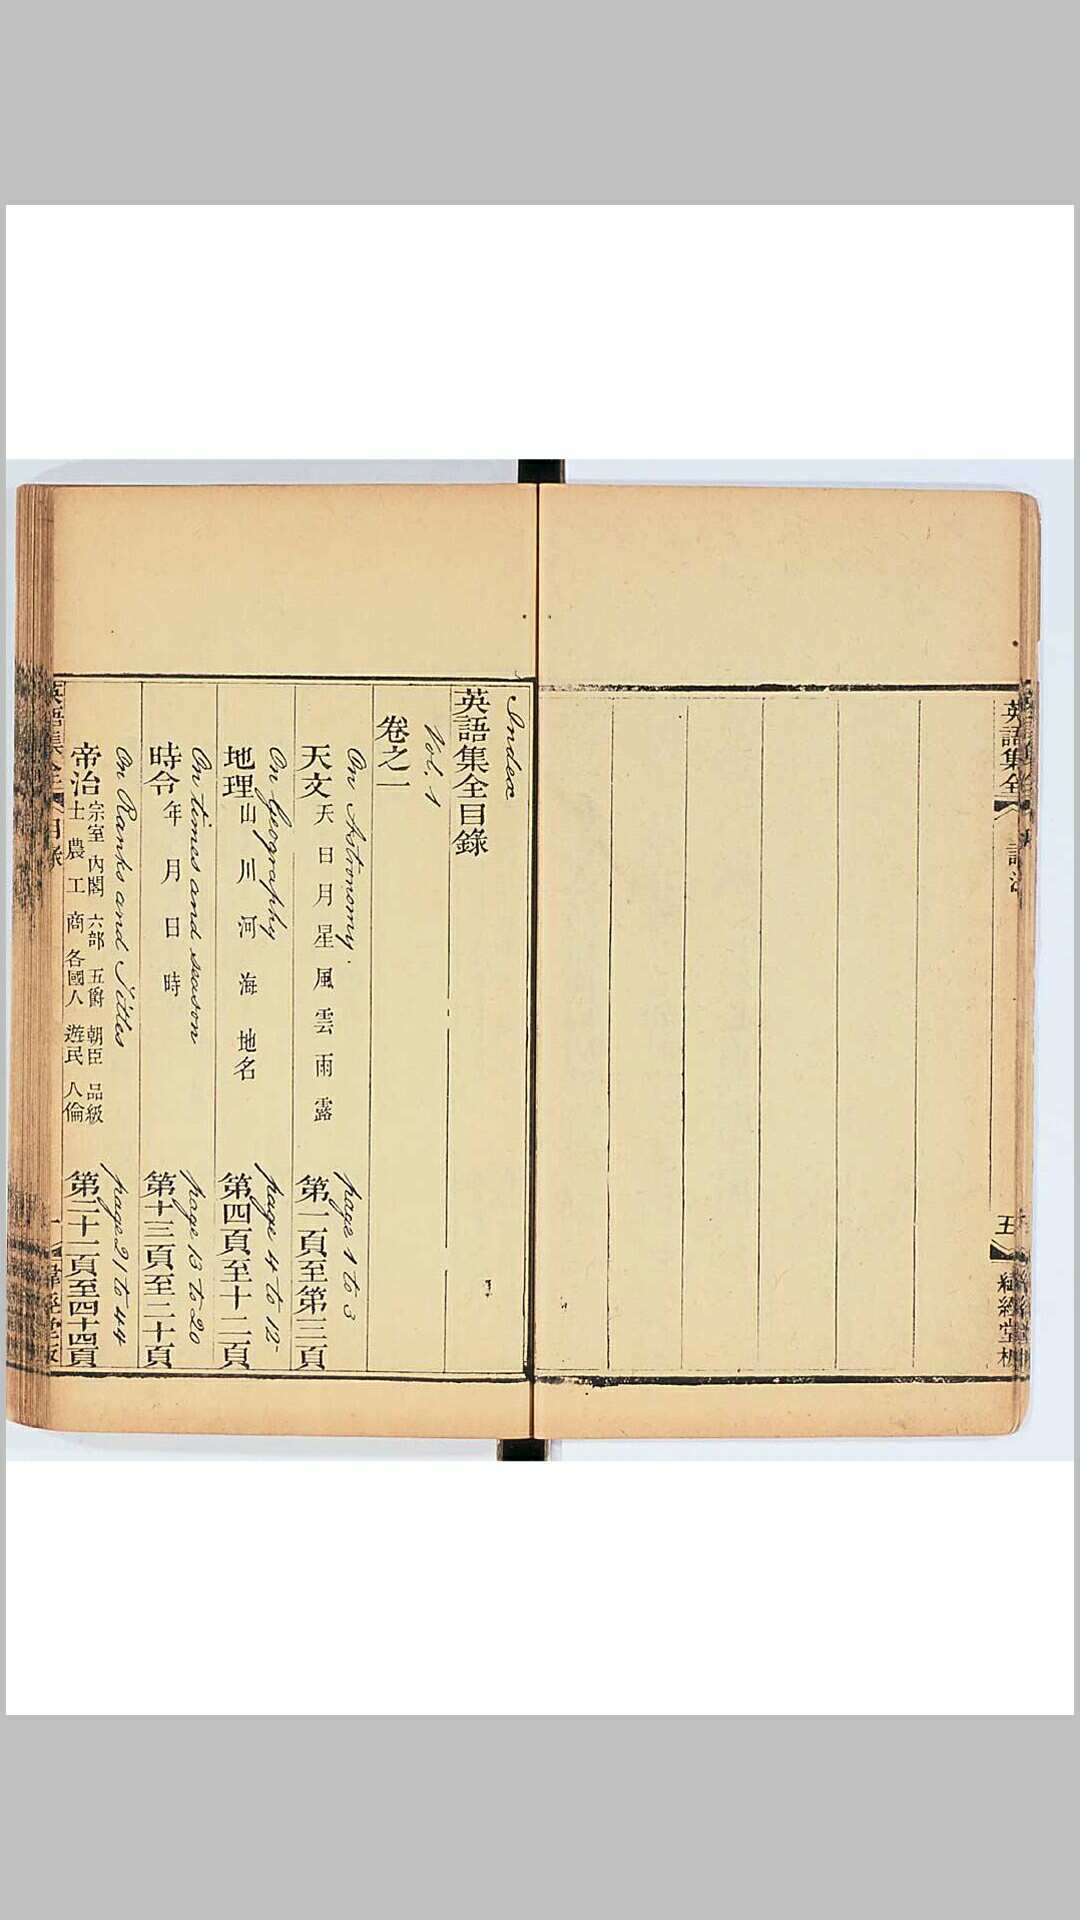 英語集全
五
Index
英語集全目錄
Vol. 1
卷之一
On Astronomy.
page 1 to 3
天文 天 日 月 星 風 雲 雨 露 第一頁至第三頁
On Geography
page 4 to 12
地理 山 川 河 海 地名 第四頁至十二頁
On times and season
page 13 to 20
時令 年 月 日 時 第十三頁至二十頁
On Ranks and Tittles
page 21 to 44
帝治 宗室 內閣 六部 五爵 朝臣 品級
士 農 工 商 各國人 遊民 人倫 第二十一頁至四十四頁